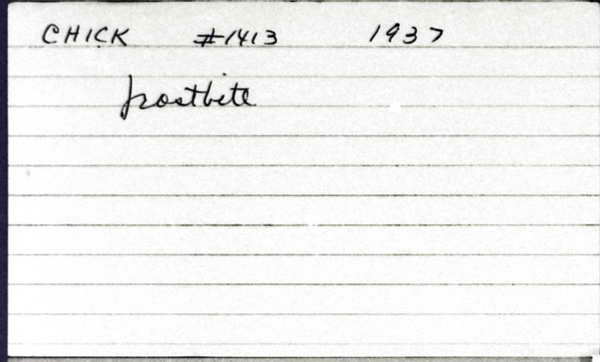 CHICK #1413 1937
frostbite